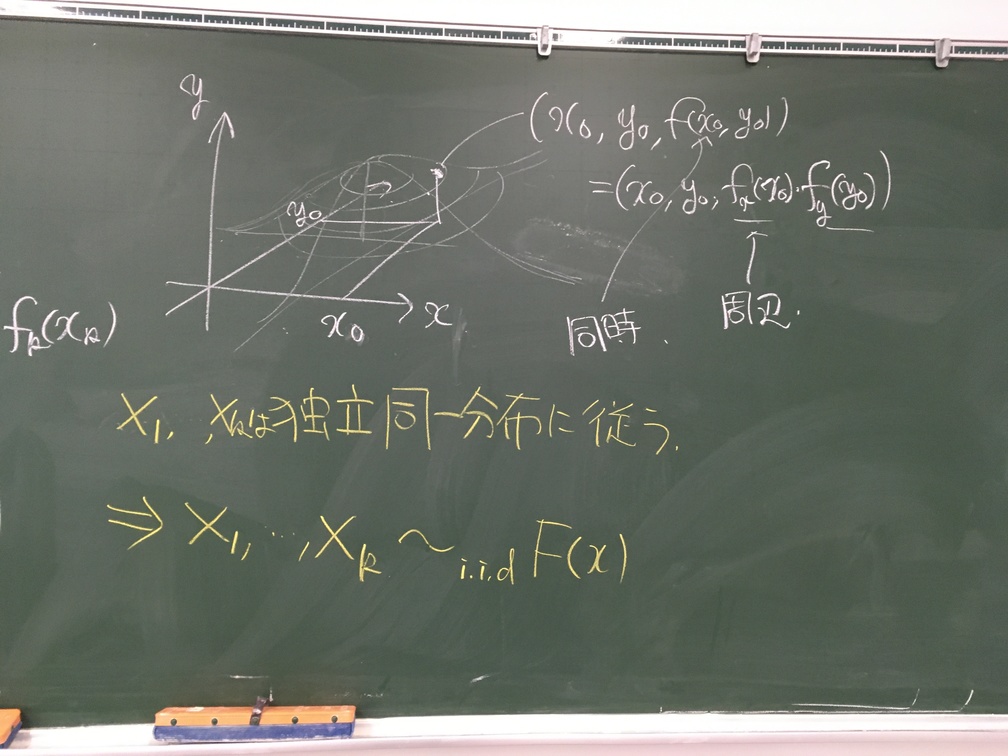 y
(x₀, y₀, f(x₀, y₀))
=(x₀, y₀, fₓ(x₀)·f_y(y₀))
y₀
x₀
x
同時.
周辺.
f_k(x_k)
X₁, ,X_kは独立同一分布に従う.
⇒ X₁,…,X_k ~ i.i.d F(x)